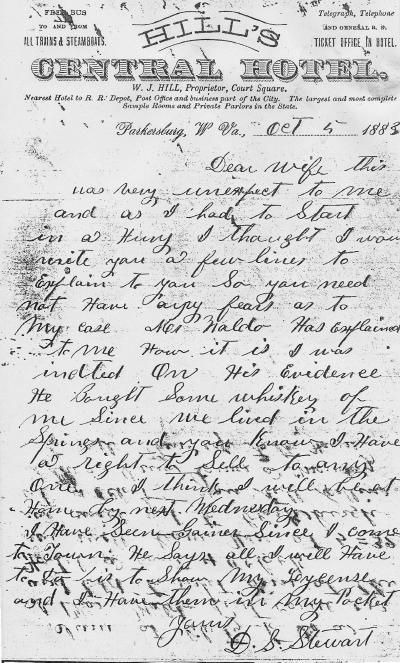 FREE BUS
TO AND FROM
ALL TRAINS & STEAMBOATS.
HILL'S
Telegraph, Telephone
AND GENERAL R. R.
TICKET OFFICE, IN HOTEL.
CENTRAL HOTEL.
W. J. HILL, Proprietor, Court Square.
Nearest Hotel to R. R. Depot, Post Office and business part of the City. The largest and most complete
Sample Rooms and Private Parlors in the State.
Parkersburg, W Va., Oct 5 1883
Dear Wife this
was very unexpect to me
and as I had to Start
in a Hury I thought I wou
write you a few lines to
Explain to you So you need
not Have any fears as to
My case Mr Waldo Has Explained
to me How it is I was
indted On His Evidence
He Bought Some whiskey of
me Since we lived in the
Springs and you Know I Have
a right to Sell to any
One I think I will be at
Home by next Wednesday
I Have Seen Gainer Since I come
to Town He Says all I will Have
to do is to Show My Lycense
and I Have them in My Pocket
Yours
D. S. Stewart